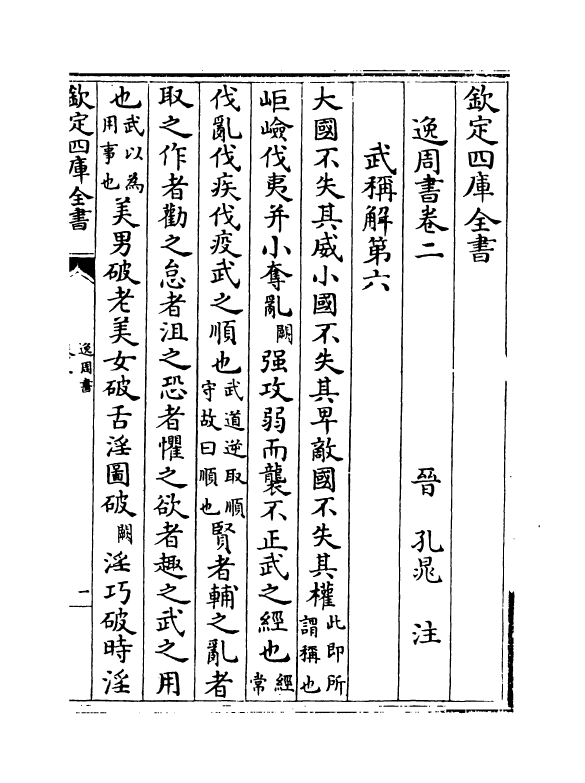 欽定四庫全書
逸周書卷二　　晉　孔晁　注
武稱解第六
大國不失其威小國不失其卑敵國不失其權此即所謂稱也
岠嶮伐夷并小奪亂闕强攻弱而襲不正武之經也經常
伐亂伐疾伐疫武之順也武道逆取順守故曰順也賢者輔之亂者
取之作者勸之怠者沮之恐者懼之欲者趣之武之用
也武以為用事也美男破老美女破舌淫圖破闕淫巧破時淫
欽定四庫全書
逸周書
一